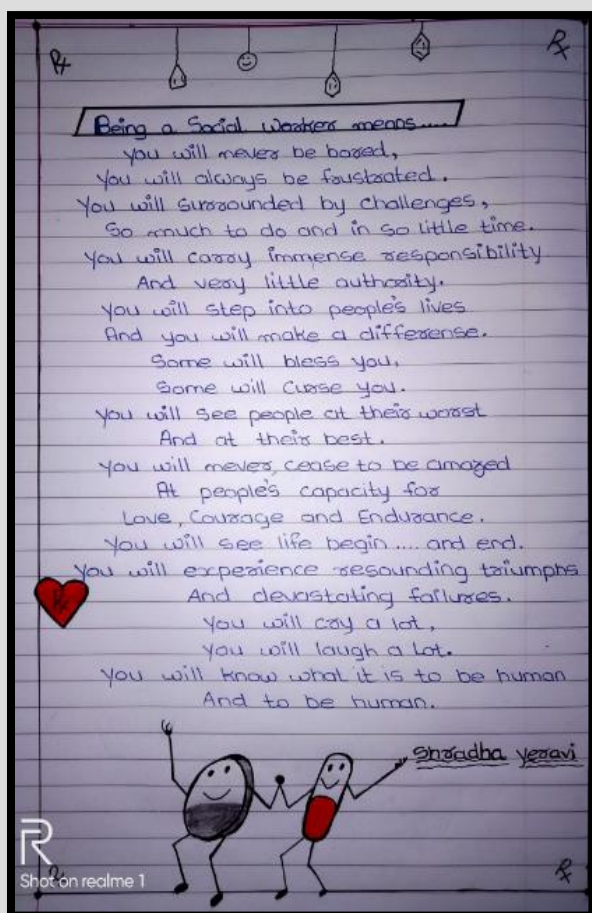 Rx
Rx
Being a Social Worker means.....
You will never be bored,
You will always be frustrated.
You will surrounded by challenges,
So much to do and in so little time.
You will carry immense responsibility
And very little authority.
You will step into people's lives
And you will make a differense.
Some will bless you,
Some will curse you.
You will see people at their worst
And at their best.
You will never, cease to be amazed
At people's capacity for
Love, Courage and Endurance.
You will see life begin .... and end.
You will experience resounding triumphs
And devastating failures.
You will cry a lot,
You will laugh a lot.
You will know what it is to be human
And to be human.
Rx
Shradha Yeravi
R
Shot on realme 1
Rx
Rx